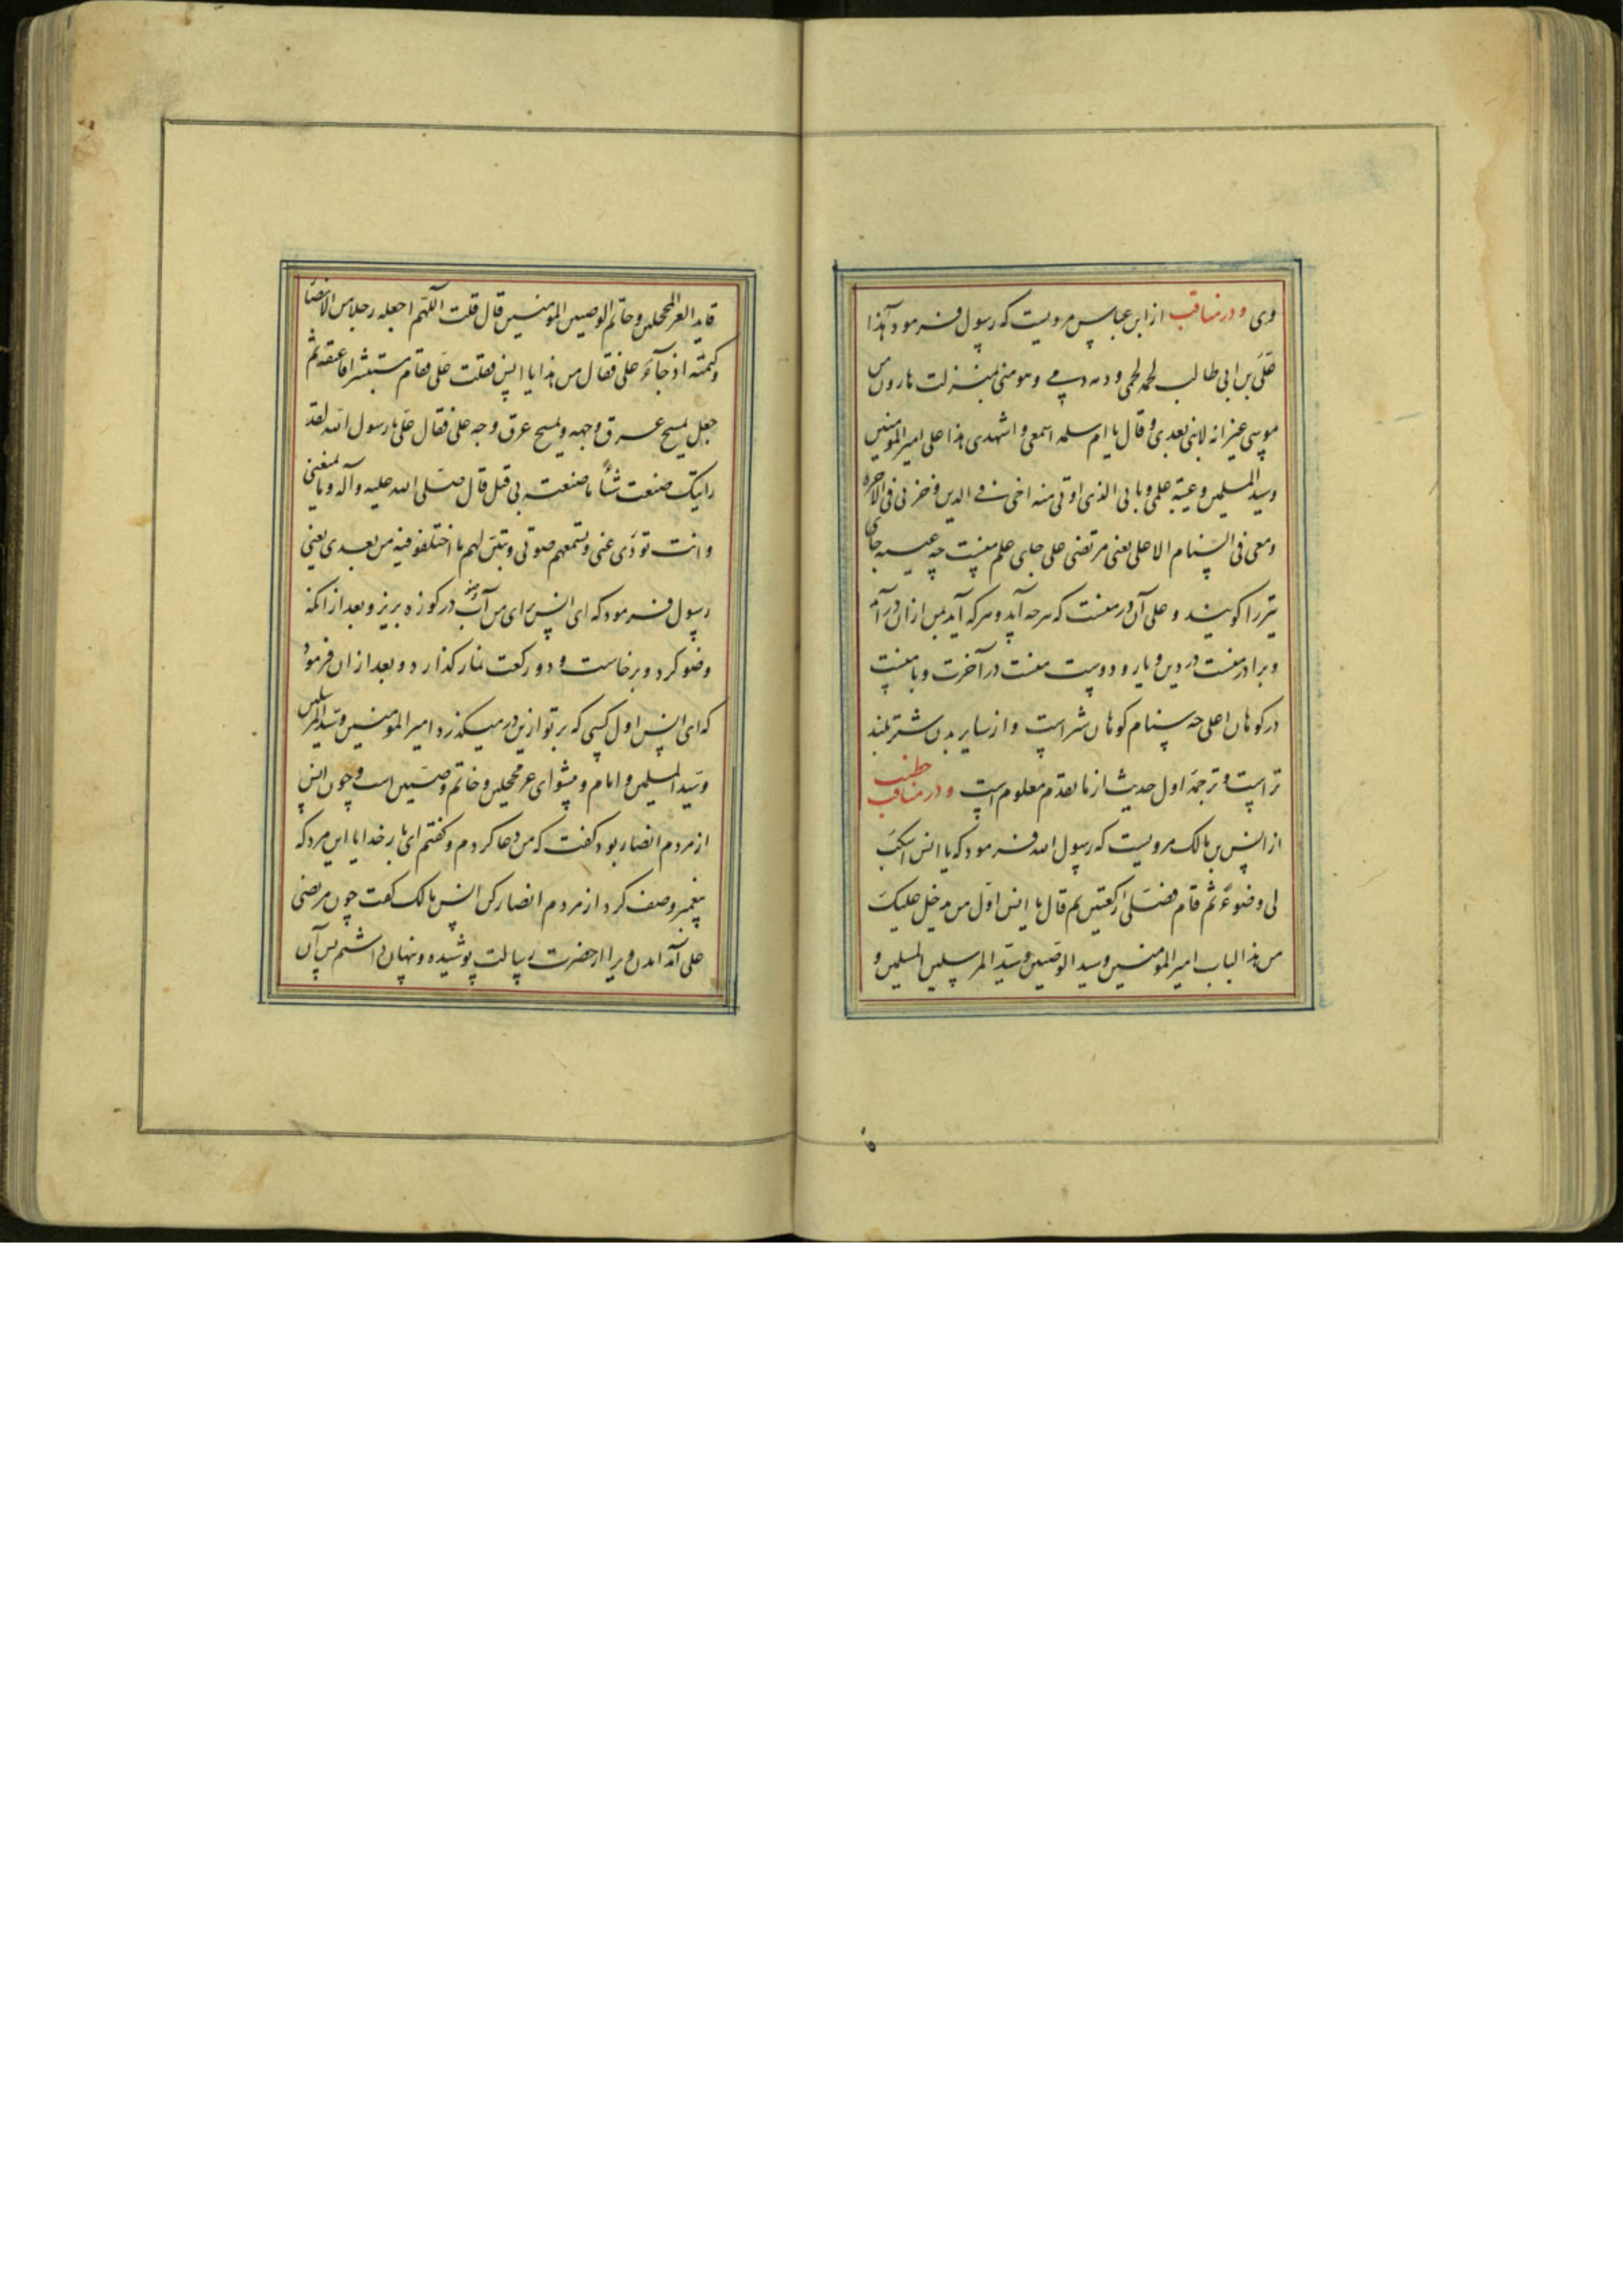 وی و در مناقب از ابن عباس مرویست که رسول فرمود هذا
علی بن ابی طالب لحمه لحمی و دمه دمی و هو منی بمنزلت هارون من
موسی غیر انه لا نبی بعدی و قال یا ام سلمه اسمعی و اشهدی هذا علی امیر المومنین
و سید المسلمین و عیبه علمی و بابی الذی اوتی منه اخی فی الدین و خدنی فی الآخره
و معی فی السنام الاعلی یعنی مرتضی علی جای علم منست چه عیبه جای
را کویند و علی آن در منست که هر چه آید و هر که آید پس از آن در آمد
و برادر منست در دین و یار و دوست منست در آخرت و با منست
در کوهان اعلی چه سنام کوهان شتر است و از سایر بدن شتر بلند
تر است و ترجمه اول حدیث از ما تقدم معلوم است و در مناقب خطیب
از انس بن مالک مرویست که رسول الله فرمود که یا انس اسکب
لی وضوءً ثم قام فصلی رکعتین ثم قال یا انس اول من یدخل علیک
من هذا الباب امیر المومنین و سید الوصیین و سید المرسلین المسلمین و
قاید الغر المحجلین و خاتم الوصیین المومنین قال قلت اللهم اجعله رجلا من الانصار
و کتمته اذ جآء علی فقال من هذا یا انس فقلت علی فقام مستبشرا فاعتنقه ثم
جعل یمسح عرق وجهه و یمسح عرق وجه علی فقال علی یا رسول الله لقد
رایتک صنعت شیأ ما صنعته بی قبل قال صلی الله علیه و آله و ما یمنعنی
و انت تودی عنی و تسمعهم صوتی و تبین لهم ما اختلفو فیه من بعدی یعنی
رسول فرمود که ای انس برای من آب وضو در کوزه بریز و بعد از آنکه
وضو کرد و برخاست و دو رکعت نماز کذارد و بعد از ان فرمود
که ای انس اول کسی که بر تو ازین در میکذرد امیر المومنین و سید المرسلین
و سید المسلمین و امام و پیشوای غر محجلین و خاتم وصیین است و چون انس
از مردم انصار بود کفت که من دعا کردم و کفتم ای بار خدایا این مرد که
پیغمبر وصف کرد از مردم انصار کن انس مالک کفت چون مرتضی
علی آمد آمدن ویرا از حضرت رسالت پوشیده و نهان داشتم پس آن